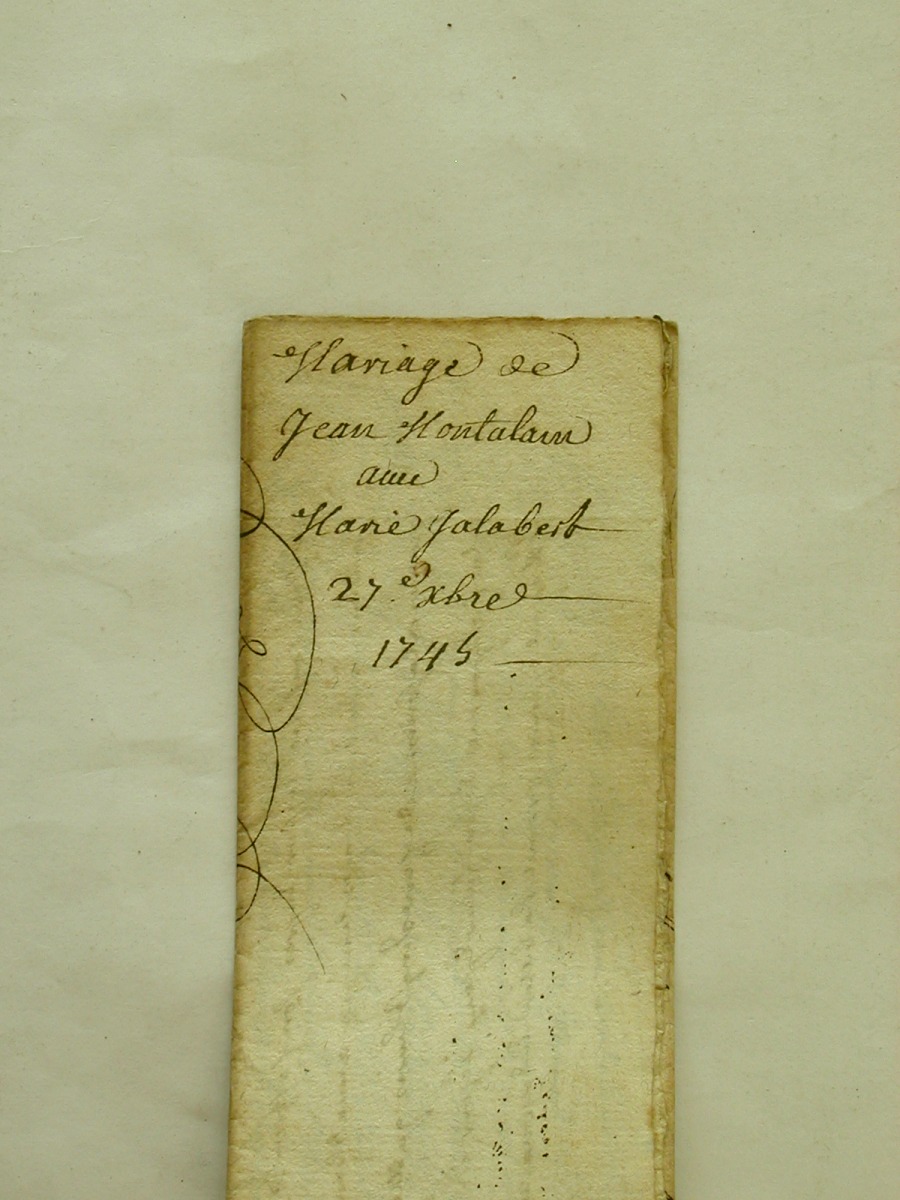 Mariage de
Jean Montalam
avec
Marie Jalabert
27.e xbre
1745